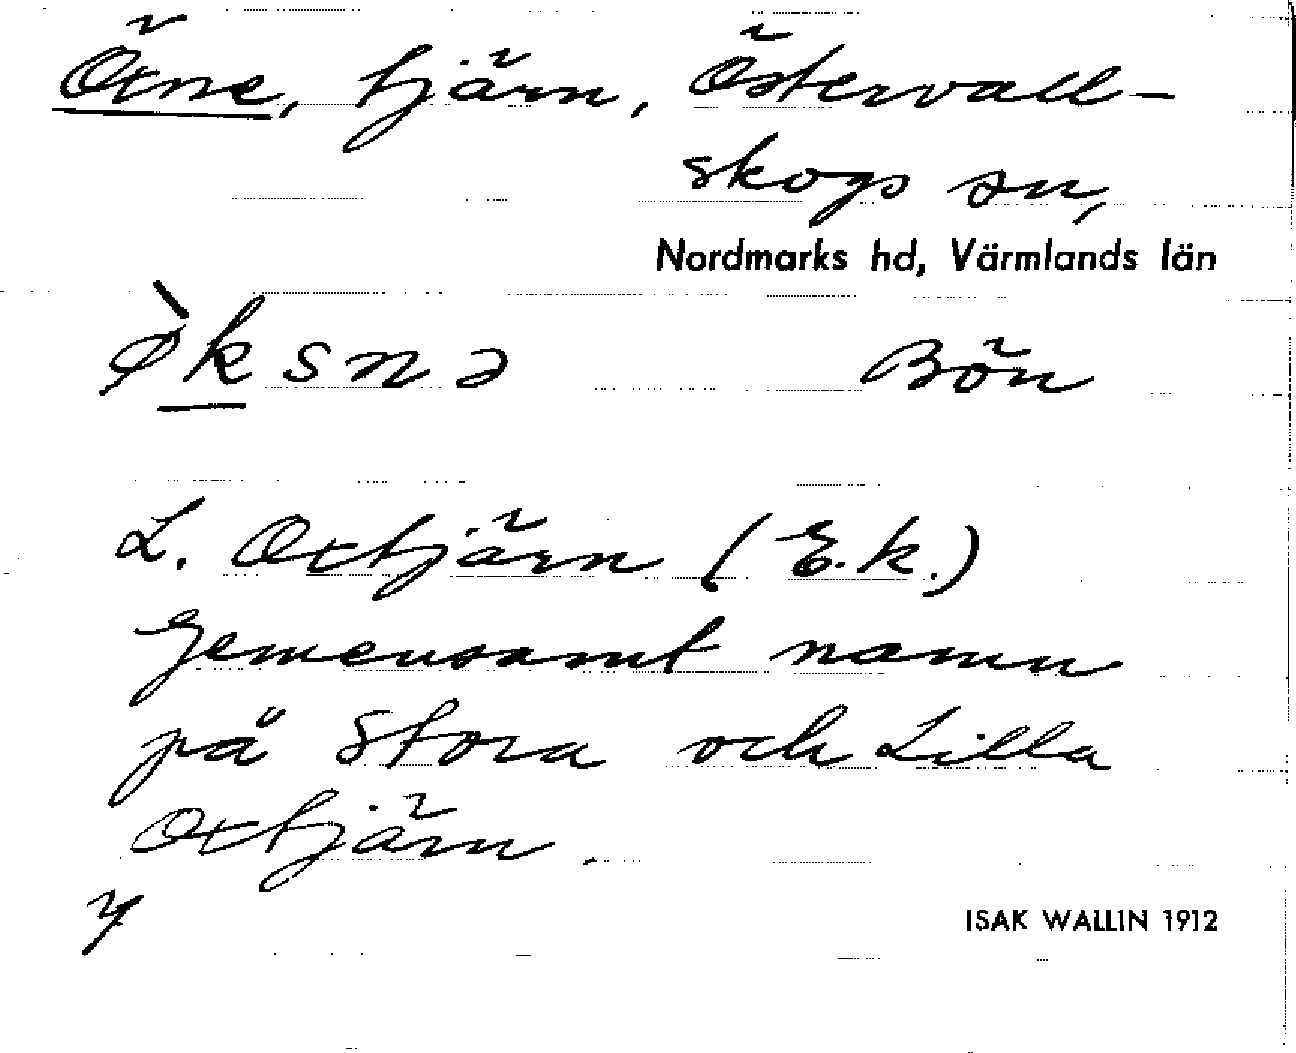 Öxne, tjärn, Östervall-
skogs sn,
Nordmarks hd, Värmlands län
ø̀ksnə Bön
L. Oxtjärn (E.k.)
Gemensamt namn
på Stora och Lilla
Oxtjärn.
ISAK WALLIN 1912